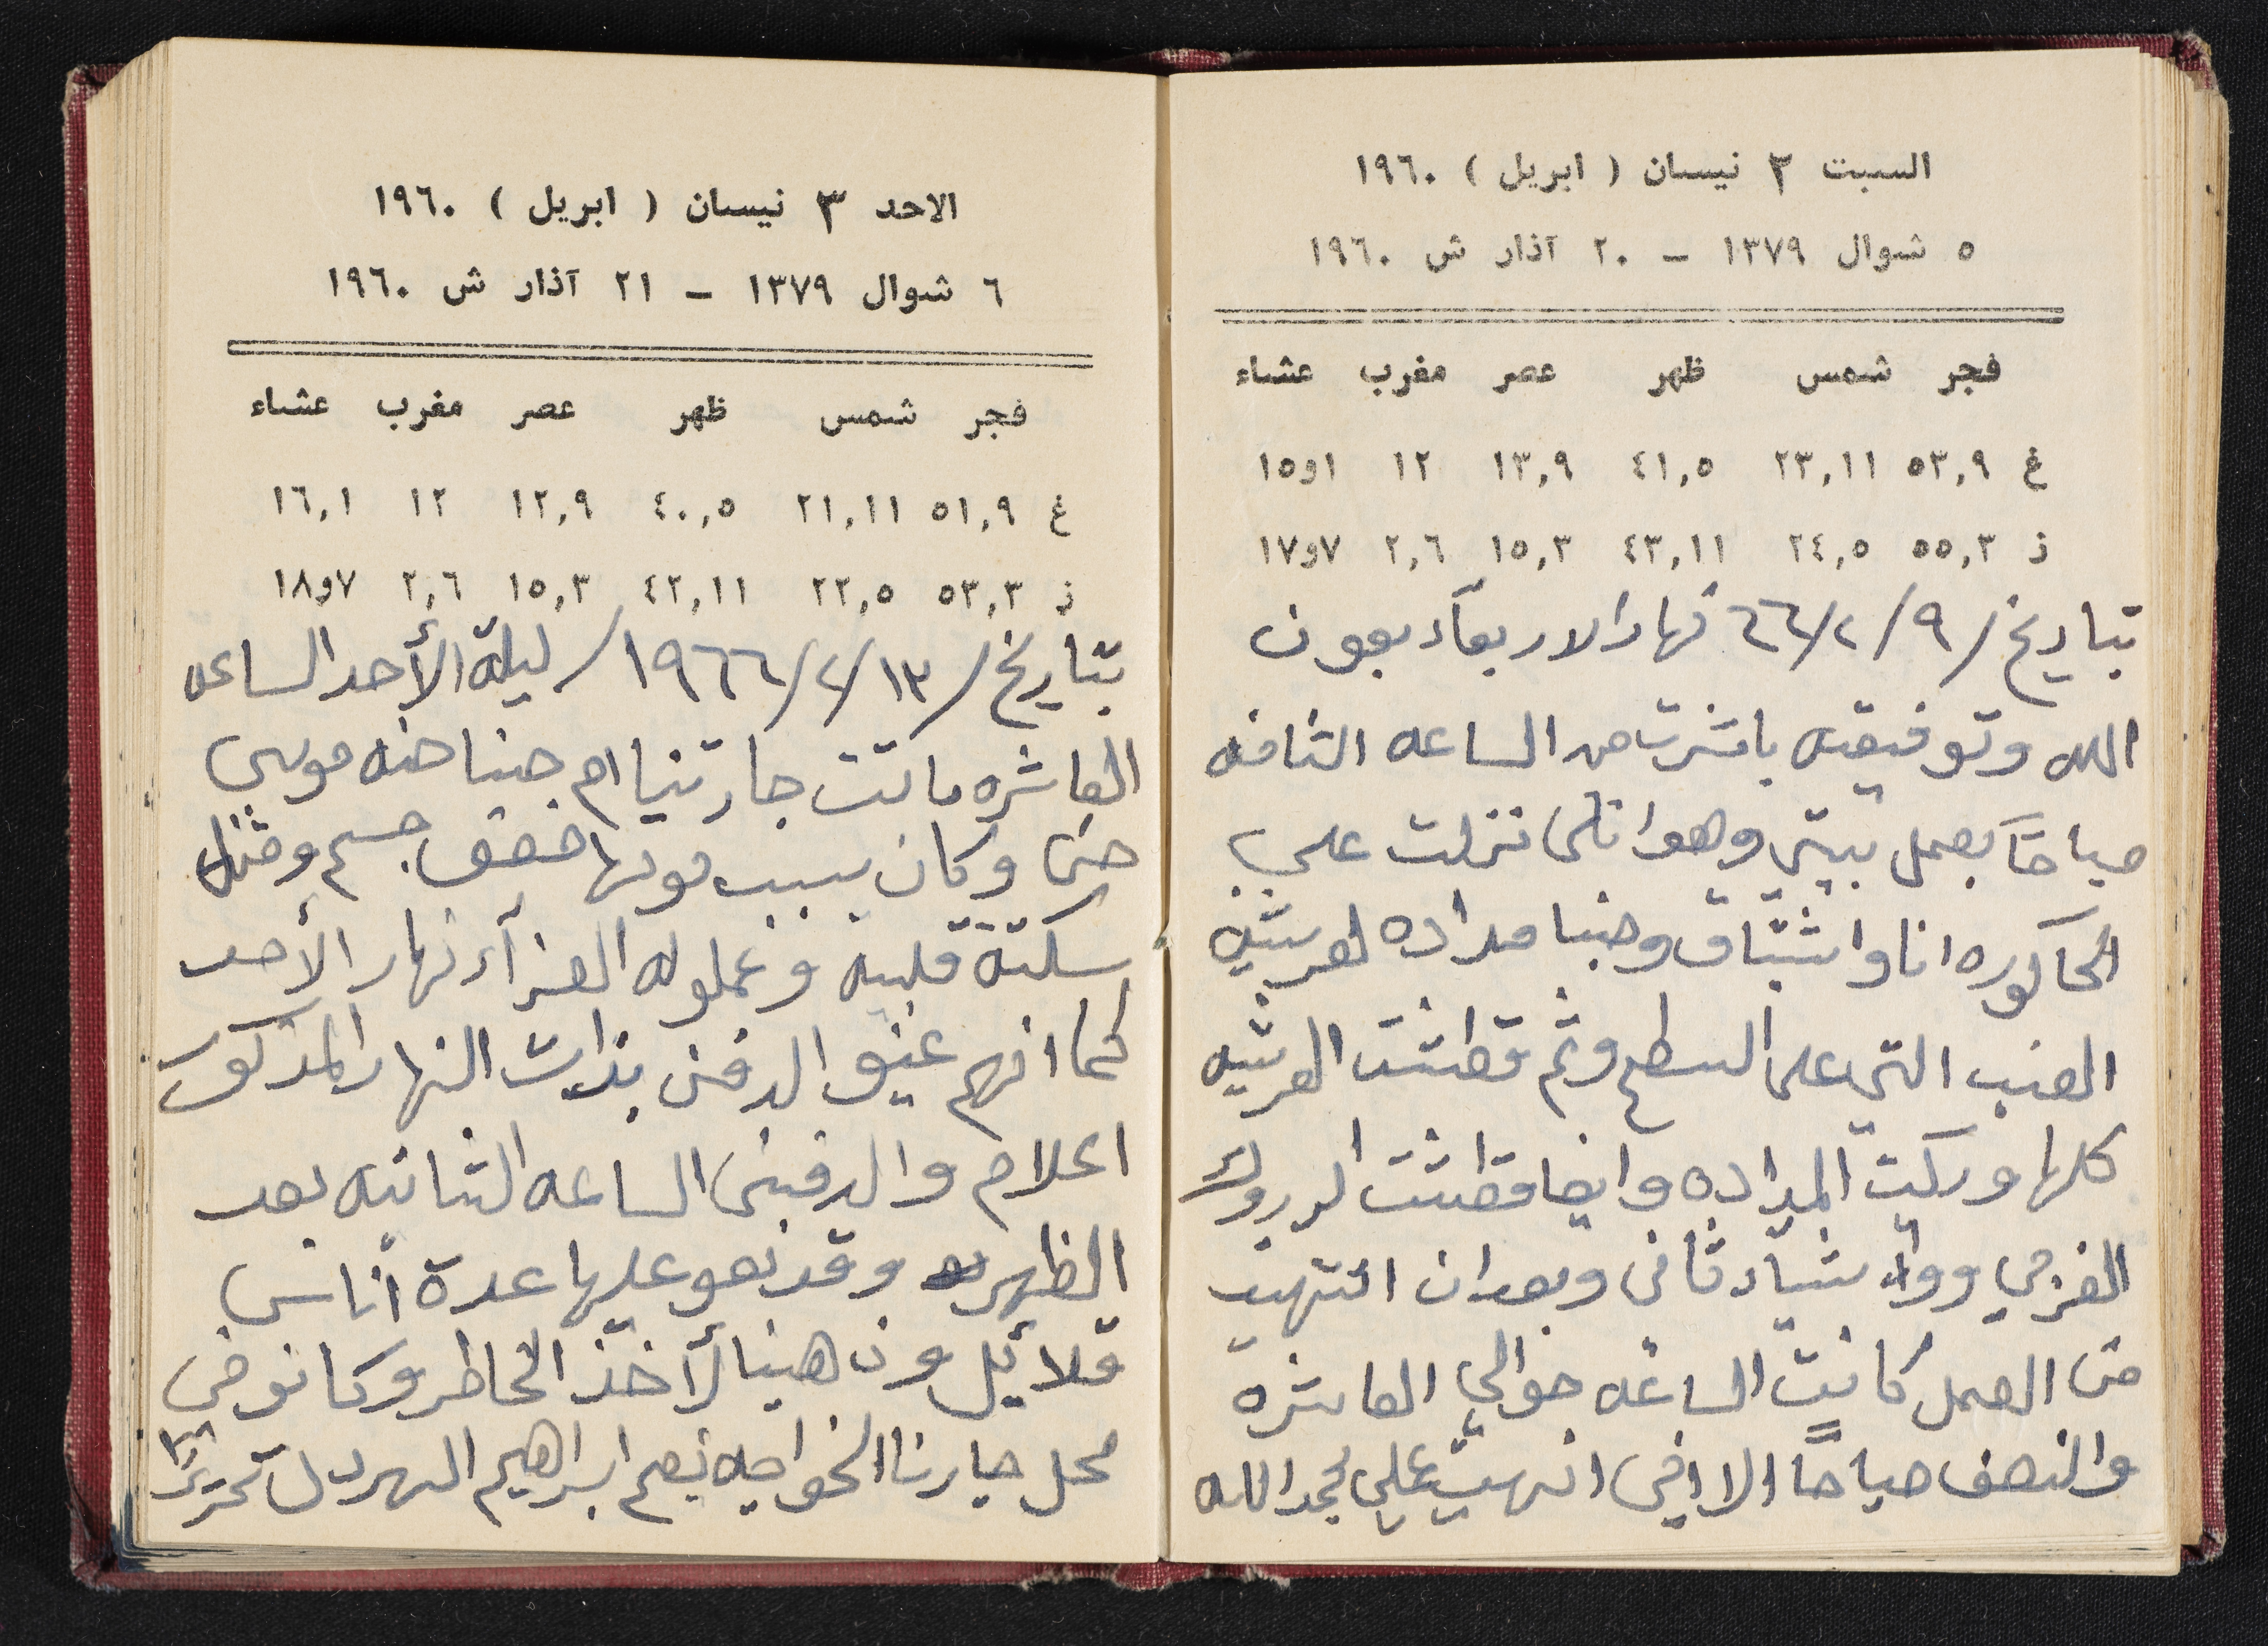 السبت ٢ نيسان ( ابريل ) ١٩٦٠
٥ شوال ١٣٧٩ – ٢٠ آذار ش ١٩٦٠
فجر شمس ظهر عصر مغرب عشاء
غ ٥٣,٩ ٢٣,١١ ٤١,٥ ١٣,٩ ١٢ ١و١٥
ذ ٥٥,٣ ٢٤,٥ ٤٣,١١ ١٥,٣ ٢,٦ ٧و١٧
بتاريخ /٩/٢/٦٦ نهار الاربعآء بعون
الله وتوفيقه باشرت من الساعه الثامنه
صباحاً بعمل بيتي وهوانني نزلت علي
الحاكوره انا واشتياق وجبنا مداده لعريشة
العنب التي على السطح وثم قصّيت العريشه
كلها وركبت المداده وايضا قصيت
وبعد ان انتهيت
من العمل كانت الساعه حوالي العاشره
والنصف صباحا الا انني انهيت عملي بحمد الله
الاحد ٣ نيسان ( ابريل ) ١٩٦٠
٦ شوال ١٣٧٩ – ٢١ آذار ش ١٩٦٠
فجر شمس ظهر عصر مغرب عشاء
غ ٥١,٩ ٢١,١١ ٤٠,٥ ١٢,٩ ١٢ ١٦,١
ذ ٥٣,٣ ٢٢,٥ ٤٢,١١ ١٥,٣ ٢,٦ ٧و١٨
بتاريخ /١٣/٢/١٩٦٦/ ليلة الأحد الساعه
العاشره ماتت جارتنا ام حنا حنه موسى
وكان سبب موتها ضعف جسم
سكتة قلبيه وعملوله العزآء نهار الأحد
كما انهم عينو الدفن بذات النهار المذكور
اعلام والدفن الساعه الثانيه بعد
الظهر وقد نعو عليها عدة أناس
قلائل وذهبنا لأخذ الخاطر وكانو في
محل جارنا الخواجه نعيم ابراهيم تحريرًا